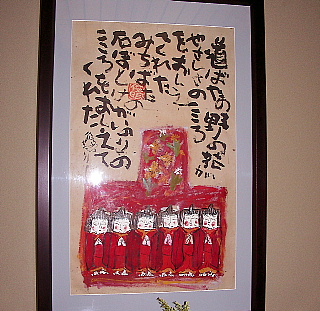 道ばたの野の花が
やさしさのこころ
をおしえ
てくれた
みちばたの
石ぼとけがいのりの
こころをおしえて
くれた